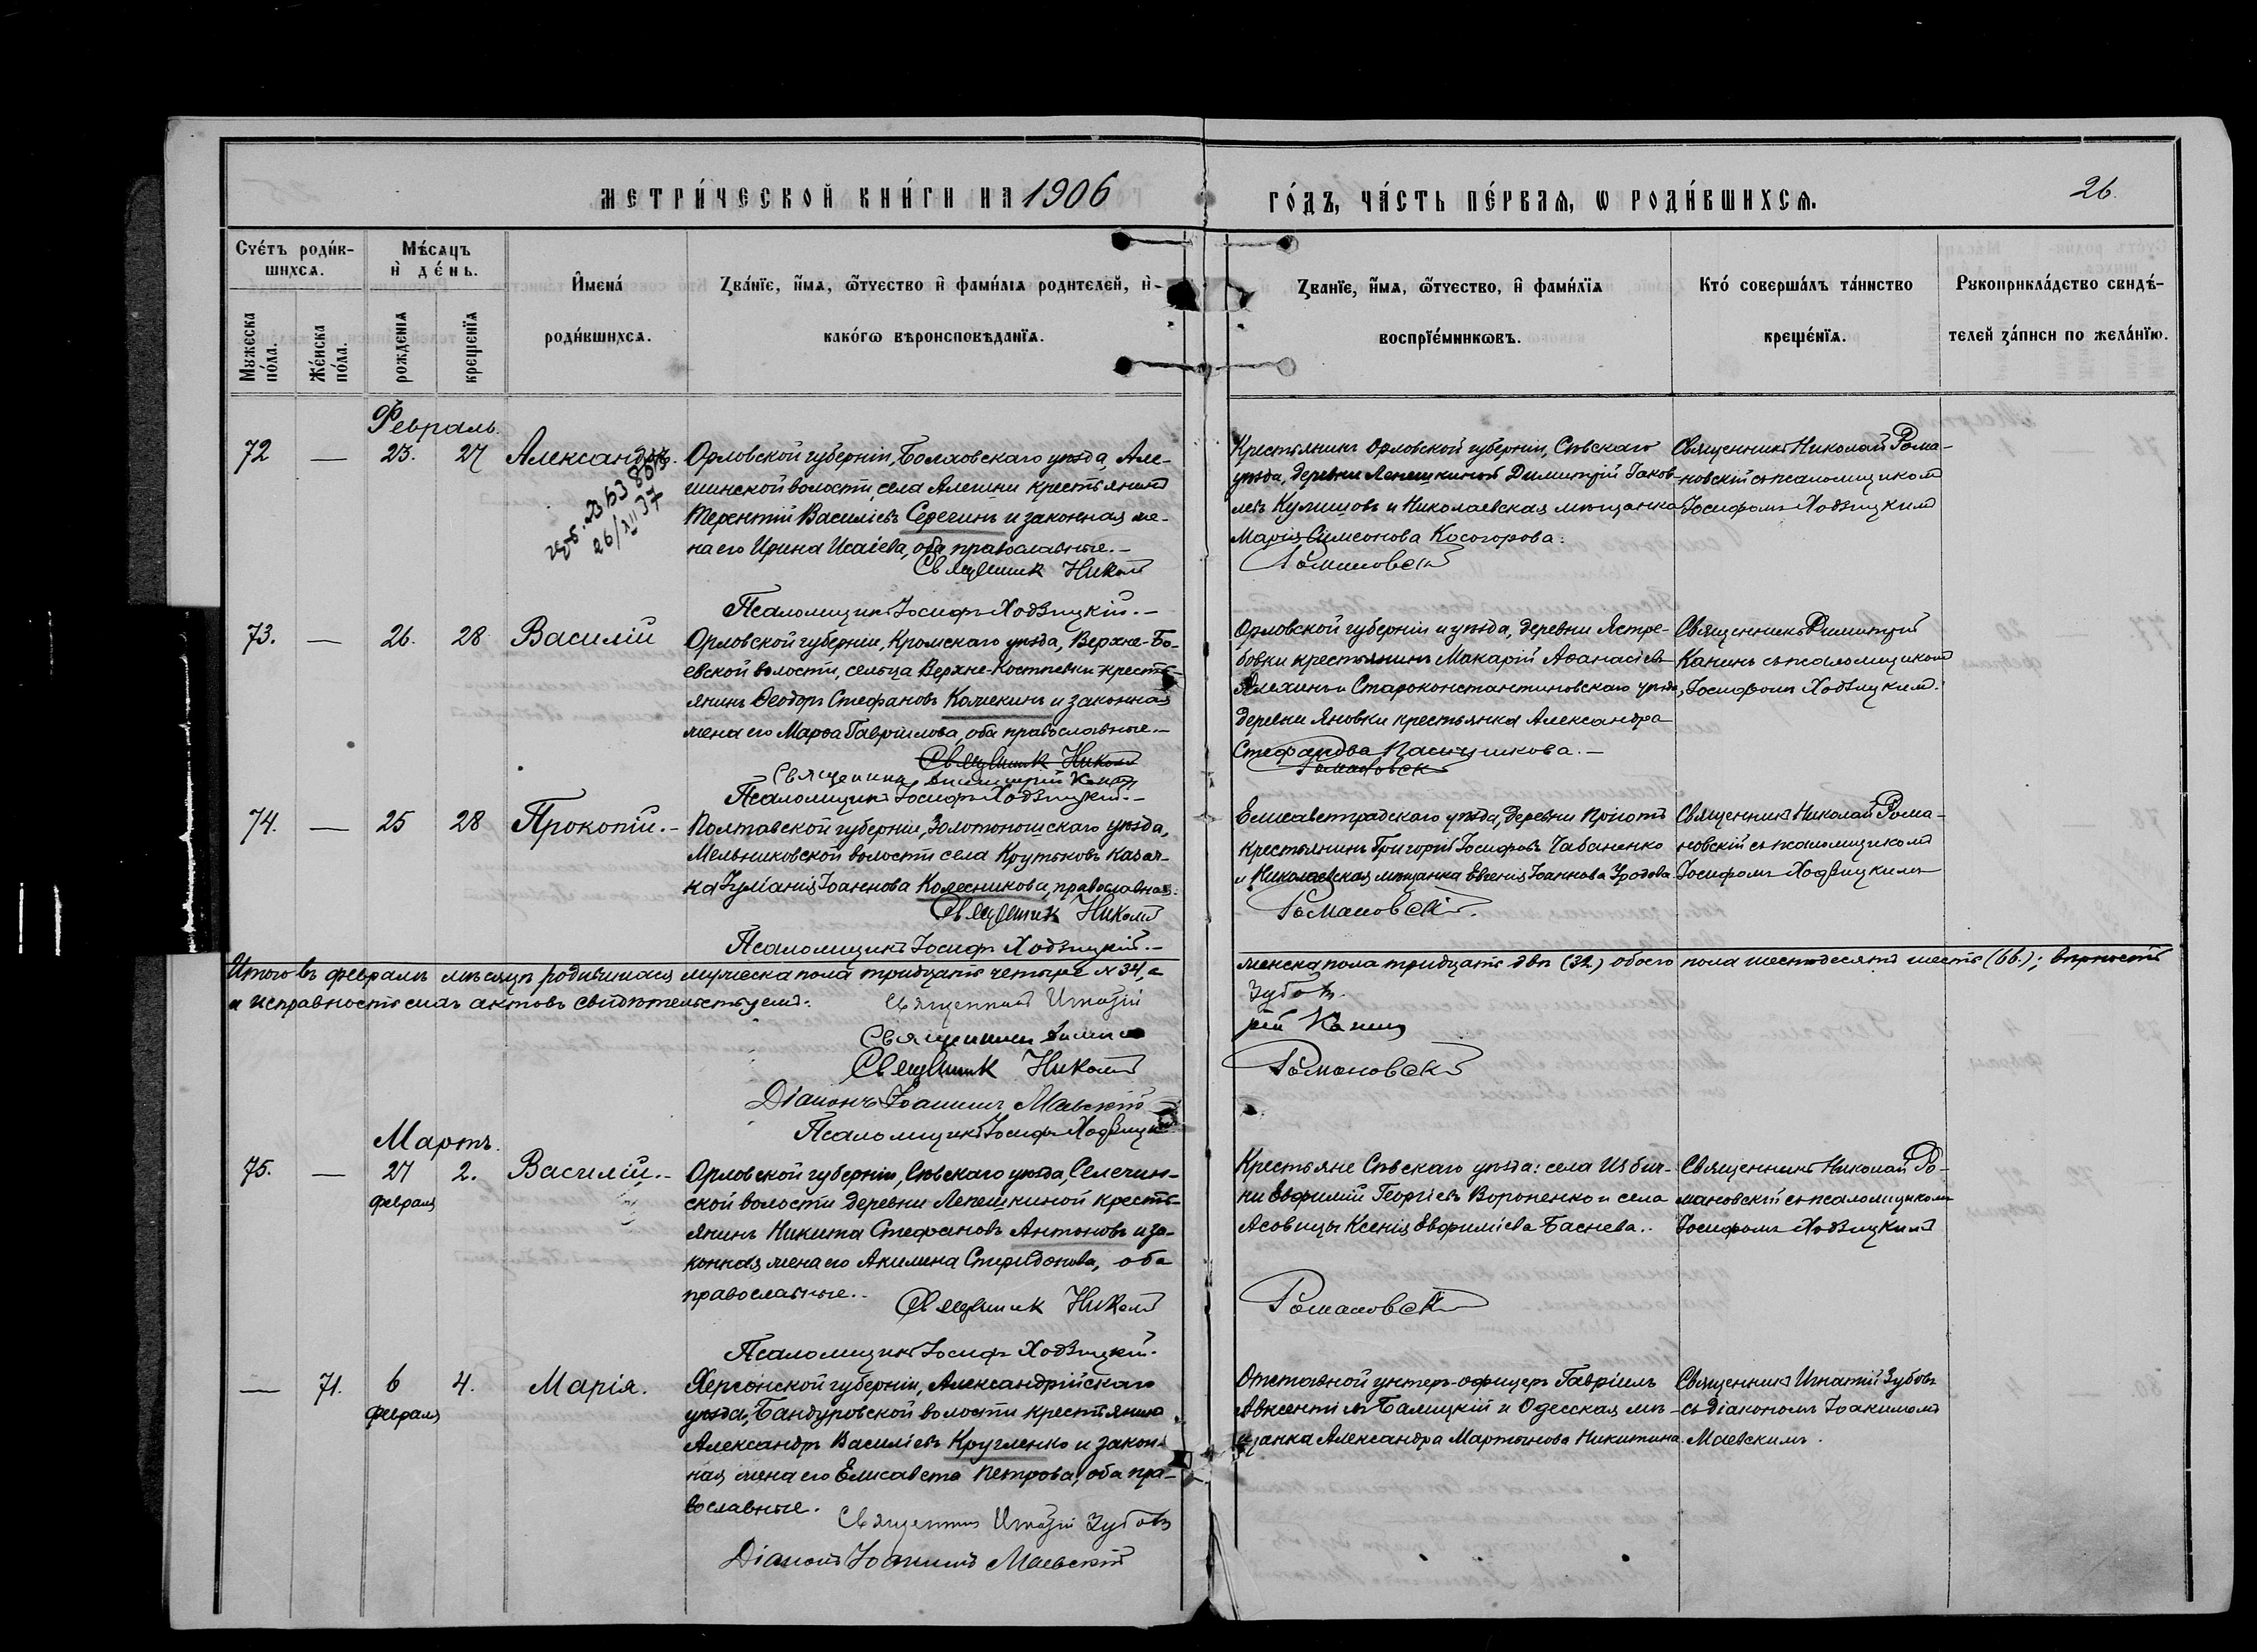 МЕТРИ́ЧЕСКОЙ КНИ́ГИ НА 1906 ГО́ДЪ, ЧА́СТЬ ПЕ́РВАѦ, Ѡ РОДИ́ВШИХСѦ.
26.
Счéтъ роди́в-
шихсѧ.
Мꙋжеска пóла.
Жéнска пóла.
Мѣ́сѧцъ
и҆ дéнь.
рождениѧ
крещенїѧ
И҆менà
роди́вшихсѧ.
Звáнїе, и҆́мѧ, ѻ҆́тчество и҆ фами́лїѧ родителей, и҆
какóгѡ вѣроисповѣданїѧ.
Званїе, и҆́мѧ, ѻ҆́тчество, и҆ фами́лїѧ
воспрїéмникѡвъ.
Ктó совершáлъ тáинство
крещéнїѧ.
Рꙋкоприклáдство свидѣ́-
телей зáписи по желáнїю.
Февраль.
72 — 23. 27 Александръ.
26/XII 37
Орловской губерніи, Болховскаго уѣзда, Але-
шинской волости, села Алешни крестьянинъ
Терентій Василіевъ Серегинъ и законная же-
на его Ирина Исаіева, оба православные.—
Священник Николай
Романовскій
Псаломщикъ Іосифъ Ходзицкій.—
Крестьянинъ Орловской губерніи, Сѣвскаго
уѣзда, деревни Лепешкиной Димитрій Іаков-
левъ Кулишовъ и Николаевская мѣщанка
Марія Симеонова Косогорова.
Священникъ Николай Рома-
новскій съ псаломщикомъ
Іосифомъ Ходзицкимъ
73. — 26. 28 Василій
Орловской губерніи, Кромскаго уѣзда, Верхне-Бо-
евской волости, сельца Верхне-Костеевки кресть-
янинъ Ѳеодоръ Стефановъ Колчекинъ и законная
жена его Марѳа Гавріилова, оба православные.—
Священник Николай
Романовскій
Священникъ Димитрій Канинъ
Псаломщикъ Іосифъ Ходзицкій.—
Орловской губерніи и уѣзда, деревни Ястре-
бовки крестьянинъ Макарій Аѳанасіевъ
Алехинъ и Староконстантиновскаго уѣзда,
деревни Яновки крестьянка Александра
Стефанова Пасичникова.—
Священникъ Димитрій
Канинъ съ псаломщикомъ
Іосифомъ Ходзицкимъ.
74. — 25 28 Прокопій.—
Полтавской губерніи, Золотоношскаго уѣзда,
Мельниковской волости села Крутьковъ казач-
ка Іуліанія Іоаннова Колесникова, православная.
Священник Николай
Романовскій.
Псаломщикъ Іосифъ Ходзицкій.—
Елисаветградскаго уѣзда, деревни Пріютъ
крестьянинъ Григорій Іосифовъ Чабаненко
и Николаевская мѣщанка Евгенія Іоаннова Уродова
Священникъ Николай Рома-
новскій съ псаломщикомъ
Іосифомъ Ходзицкимъ
Итого въ февралѣ мѣсяцѣ родившихся мужеска пола тридцать четыре № 34, а женска пола тридцать двѣ (32.) обоего пола шестьдесятъ шесть (66.); вѣрность
и исправность сихъ актовъ свидѣтельствуемъ:
Священникъ Игнатій Зубовъ.
Священникъ Димитрій Канинъ
Священник Николай Романовскій
Діаконъ Іоакимъ Маевскій
Псаломщикъ Іосифъ Ходзицкій
Мартъ.
75. — 27 2. Василій.—
февраля
Орловской губерніи, Сѣвскаго уѣзда, Селечин-
ской волости деревни Лепешкиной кресть-
янинъ Никита Стефановъ Антоновъ и за-
конная жена его Акилина Спиридонова, оба
православные.
Священник Николай
Романовскій
Псаломщикъ Іосифъ Ходзицкій.
Крестьяне Сѣвскаго уѣзда: села Избич-
ни Евѳимій Георгіевъ Вороненко и села
Асовицы Ксенія Евѳиміева Баснева.
Священникъ Николай Ро-
мановскій съ псаломщикомъ
Іосифомъ Ходзицкимъ
— 71. 6 4. Марія.
февраля
Херсонской губерніи, Александрійскаго
уѣзда, Бандуровской волости крестьянинъ
Александръ Василіевъ Кругленко и закон-
ная жена его Елисавета Петрова, оба пра-
вославные.
Священникъ Игнатій Зубовъ
Діаконъ Іоакимъ Маевскій
Отставной унтеръ-офицеръ Гавріилъ
Авксентіевъ Балицкій и Одесская мѣ-
щанка Александра Мартынова Никитина.
Священникъ Игнатій Зубовъ
съ діакономъ Іоакимомъ
Маевскимъ.